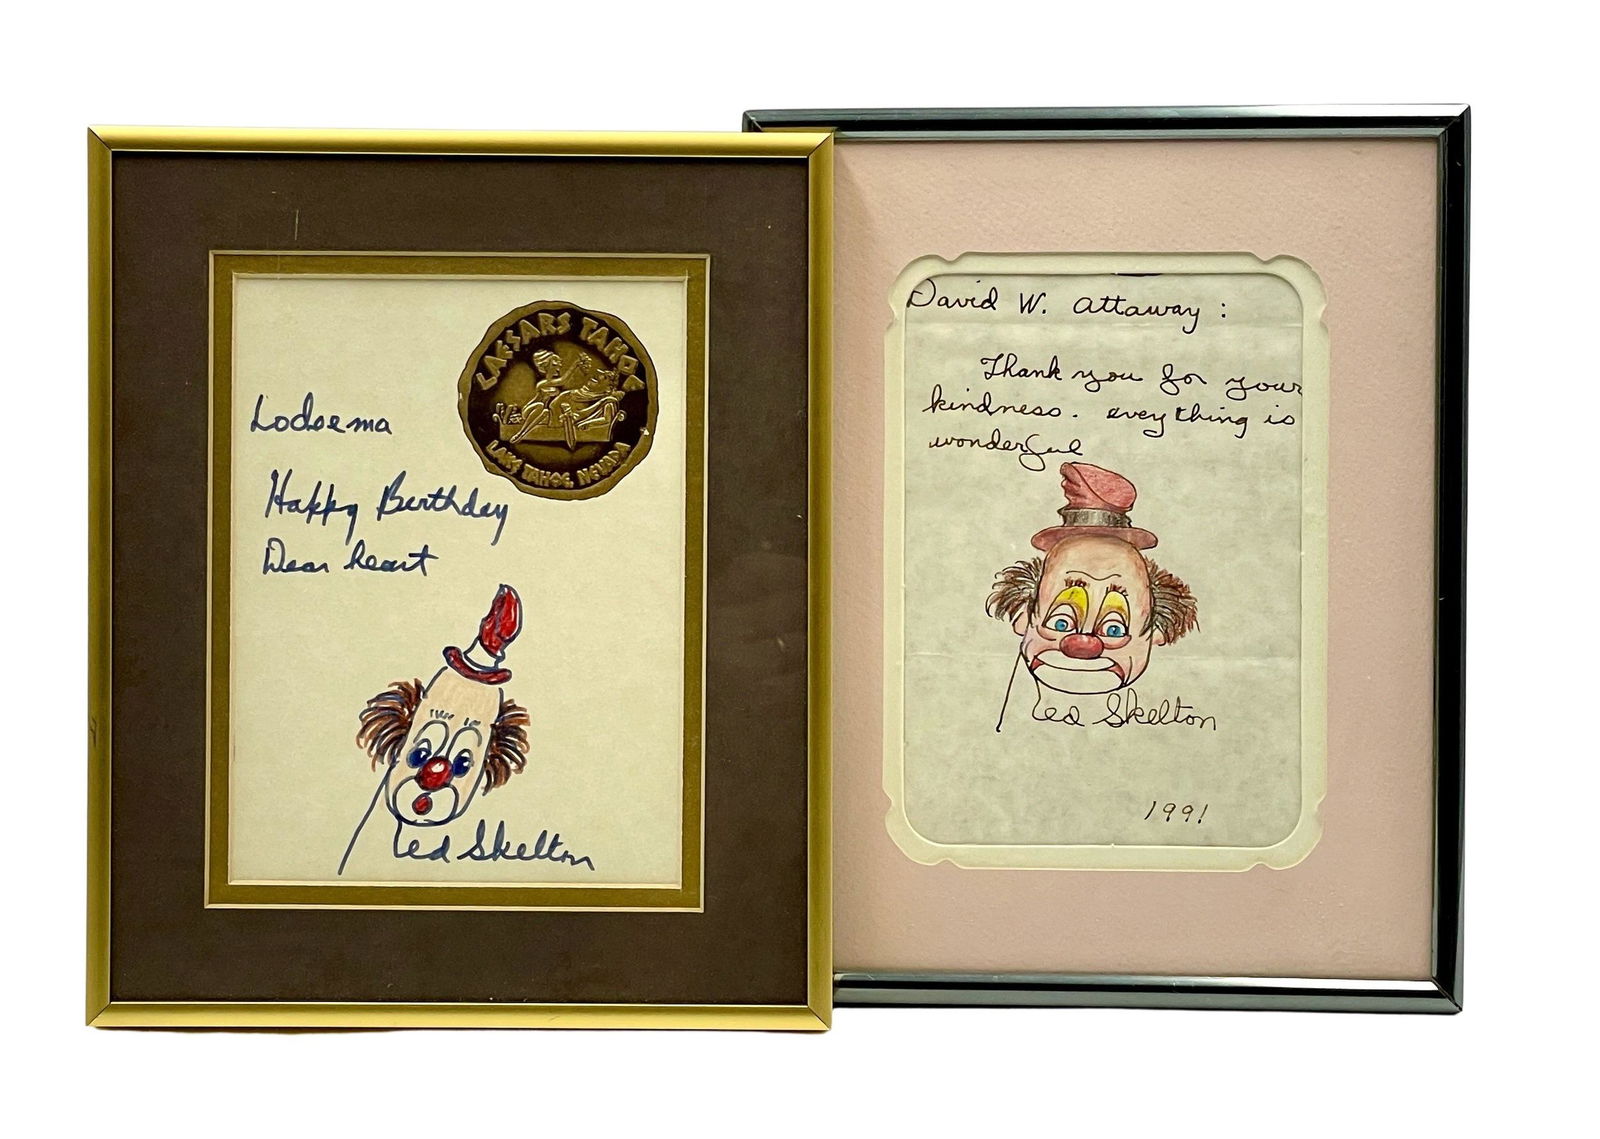 CAESARS TAHOE
LAKE TAHOE, NEVADA
Lodoema
Happy Birthday
Dear heart
Red Skelton
David W. Attaway :
Thank you for your
kindness. every thing is
wonderful
Red Skelton
1991